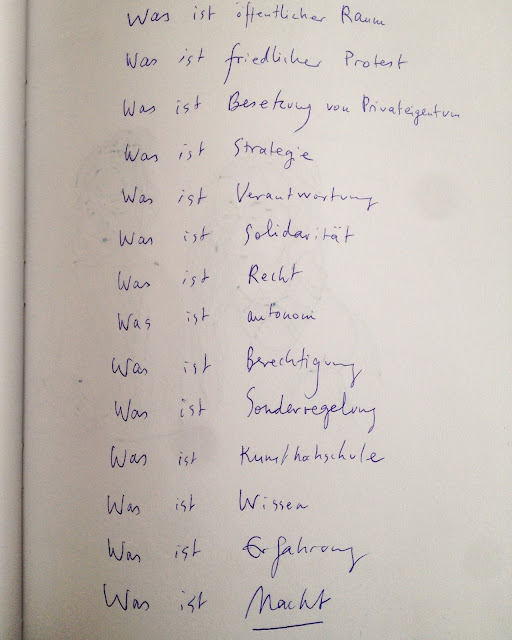 Was ist öffentlicher Raum
Was ist friedlicher Protest
Was ist Besetzung von Privateigentum
Was ist Strategie
Was ist Verantwortung
Was ist Solidarität
Was ist Recht
Was ist autonom
Was ist Berechtigung
Was ist Sonderregelung
Was ist Kunsthohschule
Was ist Wissen
Was ist Erfahrung
Was ist Macht